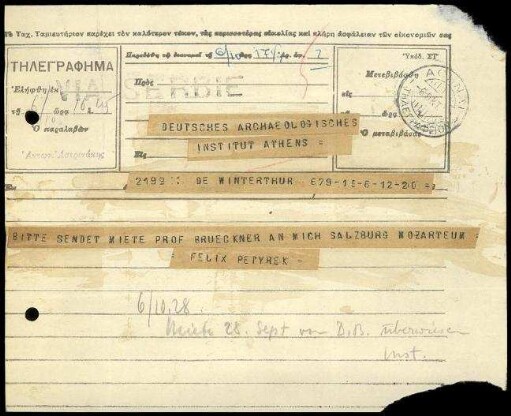 Τὸ Ταχ. Ταμιευτήριον παρέχει τὸν καλύτερον τόκον, τὰς περισσοτέρας εὐκολίας καὶ πλήρη ἀσφάλειαν τῶν οἰκονομιῶν σας
ΤΗΛΕΓΡΑΦΗΜΑ
Ἐλήφθη ἐκ
Ὁ παραλαβὼν
VIA SERBIE
Παρεδόθη
6/10
Πρὸς
Εἰς
Μετεβιβάσθη
Ὁ μεταβιβάσας
ΑΘΗΝΑΙ
DEUTSCHES ARCHAEOLOGISCHES
INSTITUT ATHENS =
2199 DE WINTERTHUR 679-15-6-12-20 =
BITTE SENDET MIETE PROF BRUECKNER AN MICH SALZBURG MOZARTEUM
= FELIX PETYREK -
6/10.28.
Miete 28. Sept von D.B. überwiesen
Inst.